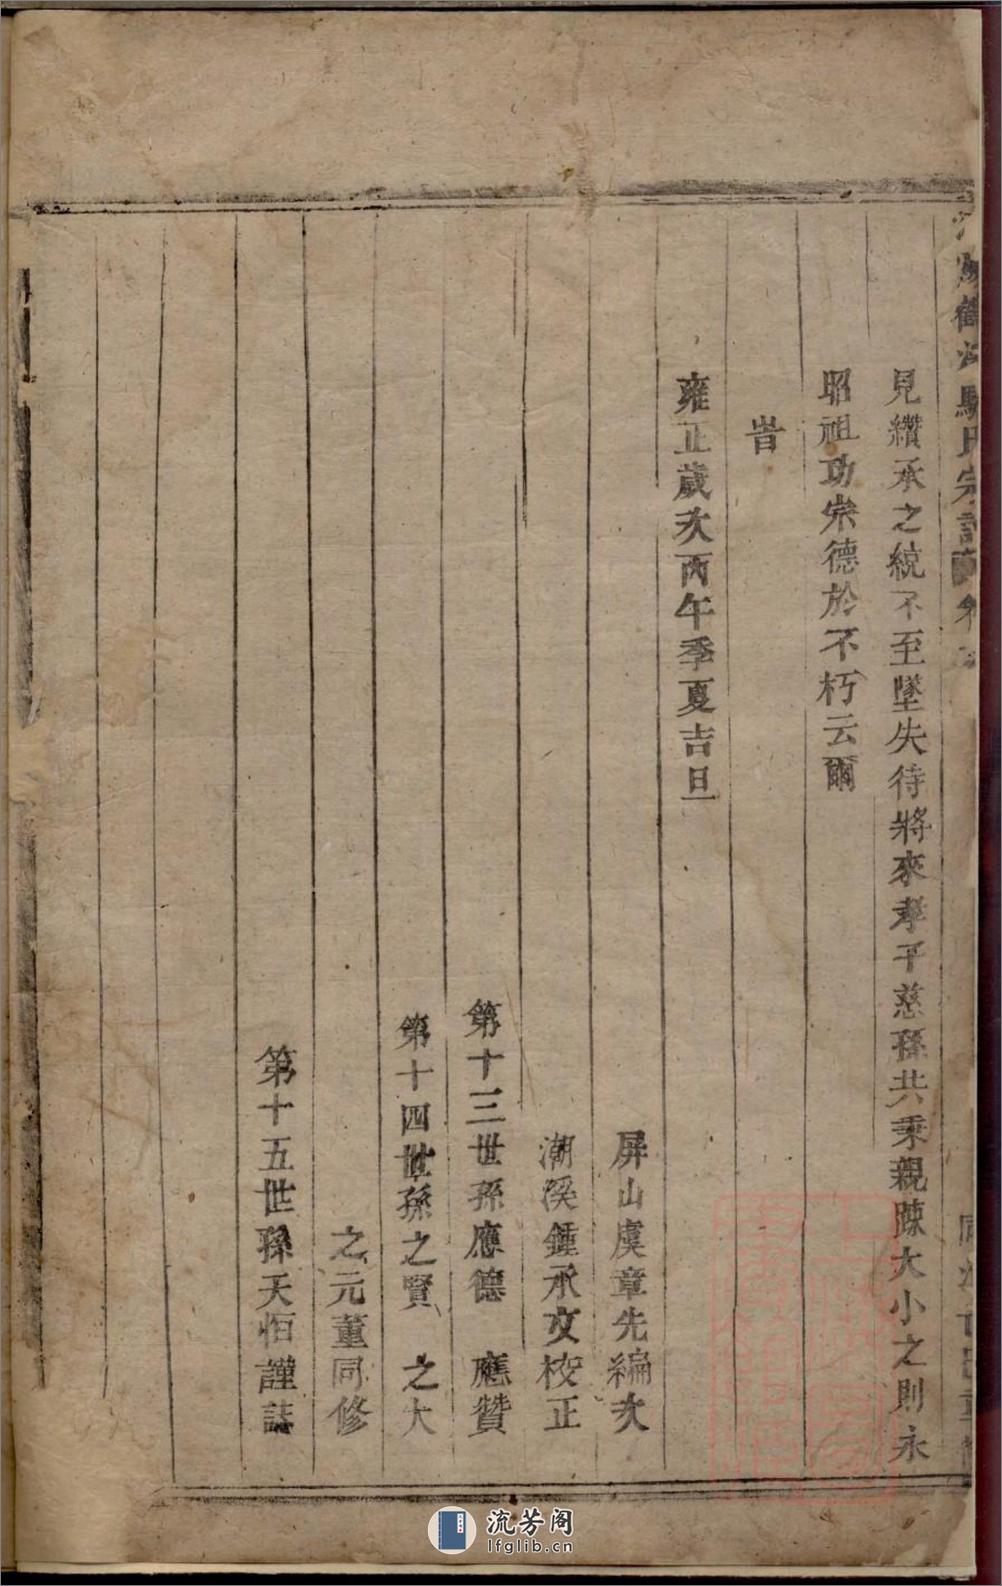 鶴沙駱氏宗譜
見纘承之統不至墜失待將來孝子慈孫共秉親踈大小之則永
昭祖功宗德於不朽云爾
旹
雍正歲次丙午季夏吉旦
屏山虞章先編次
潮溪鍾承文校正
第十三世孫應德 應贊
第十四世孫之賢 之大
之元董同修
第十五世孫天恒謹誌
流芳阁
lfglib.cn